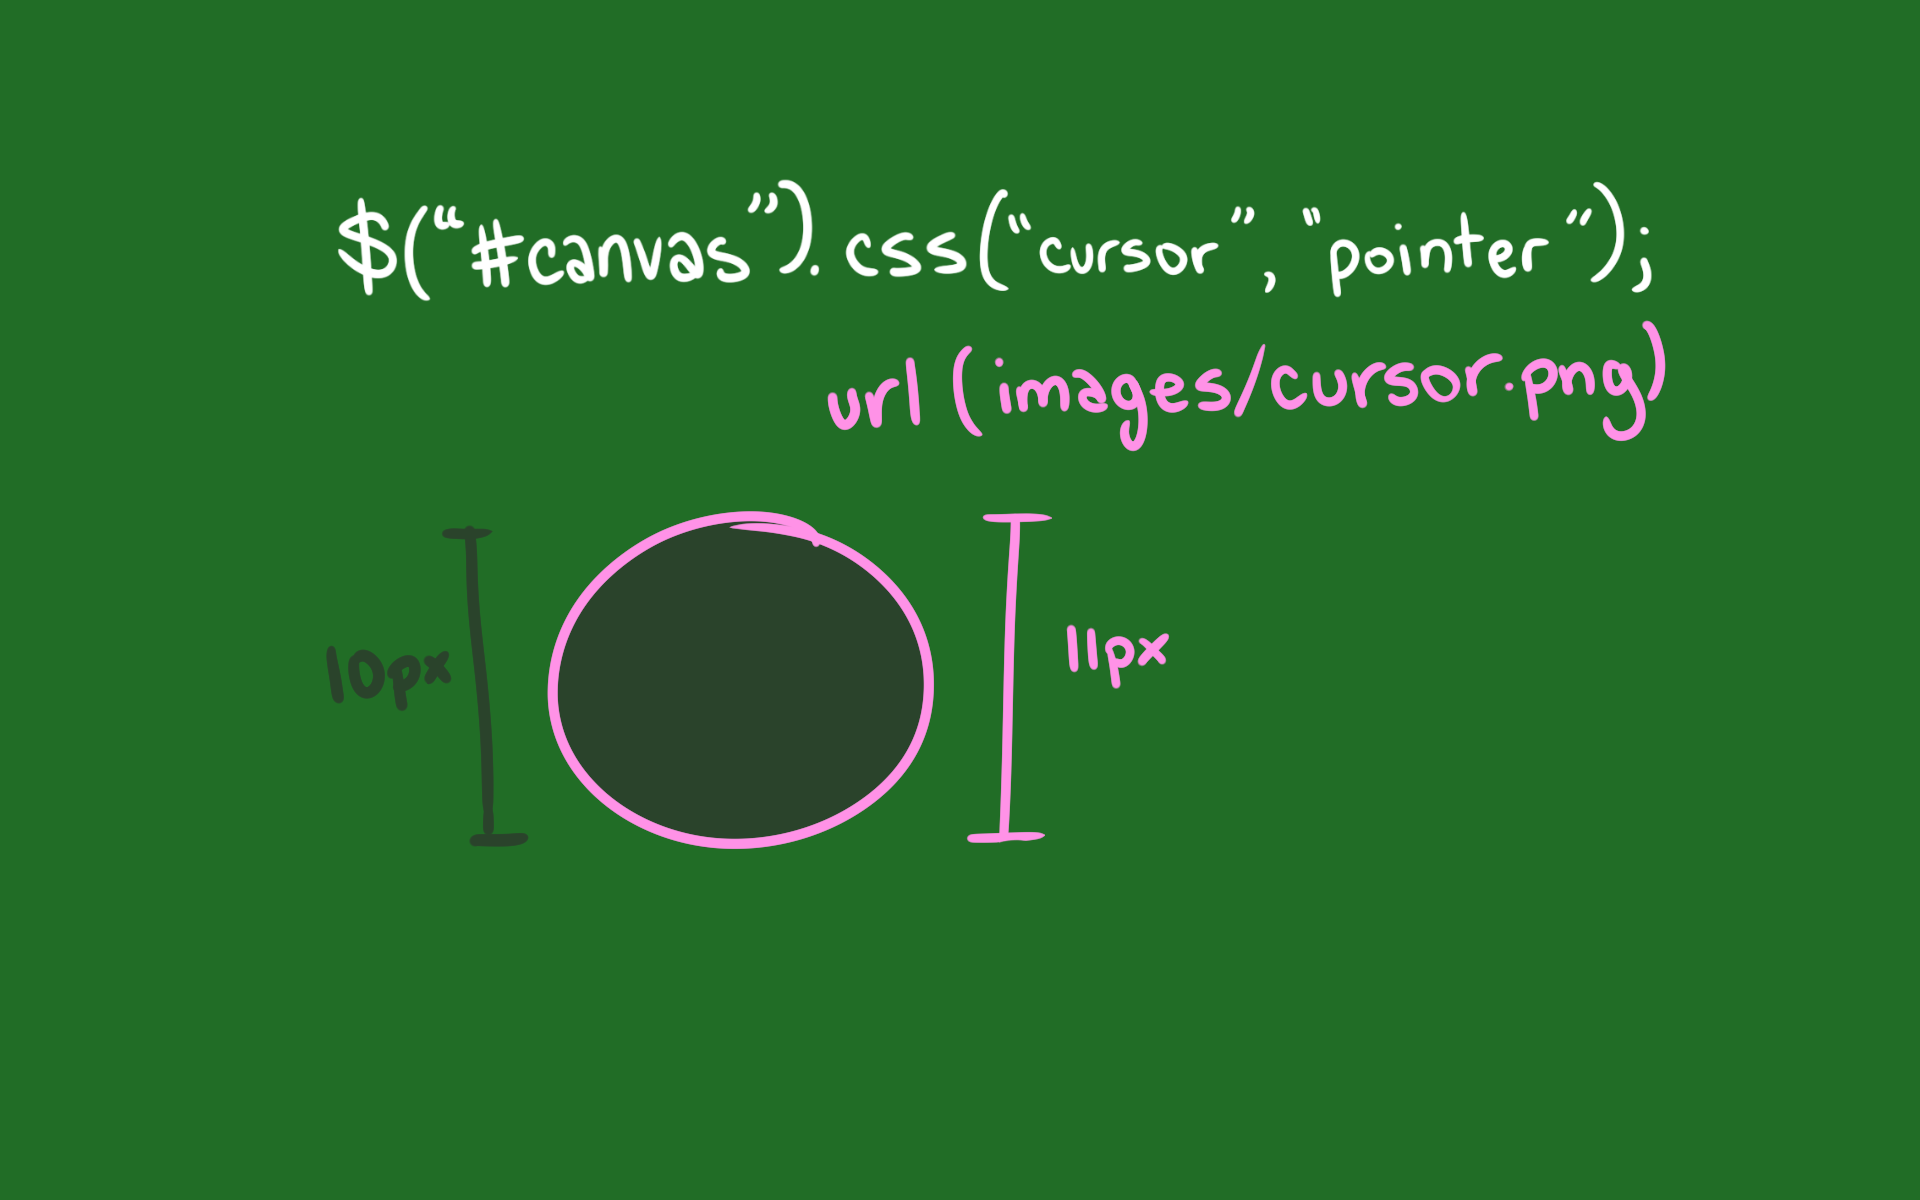 $(“#canvas”).css(“cursor”, “pointer”);
url (images/cursor.png)
10px
11px